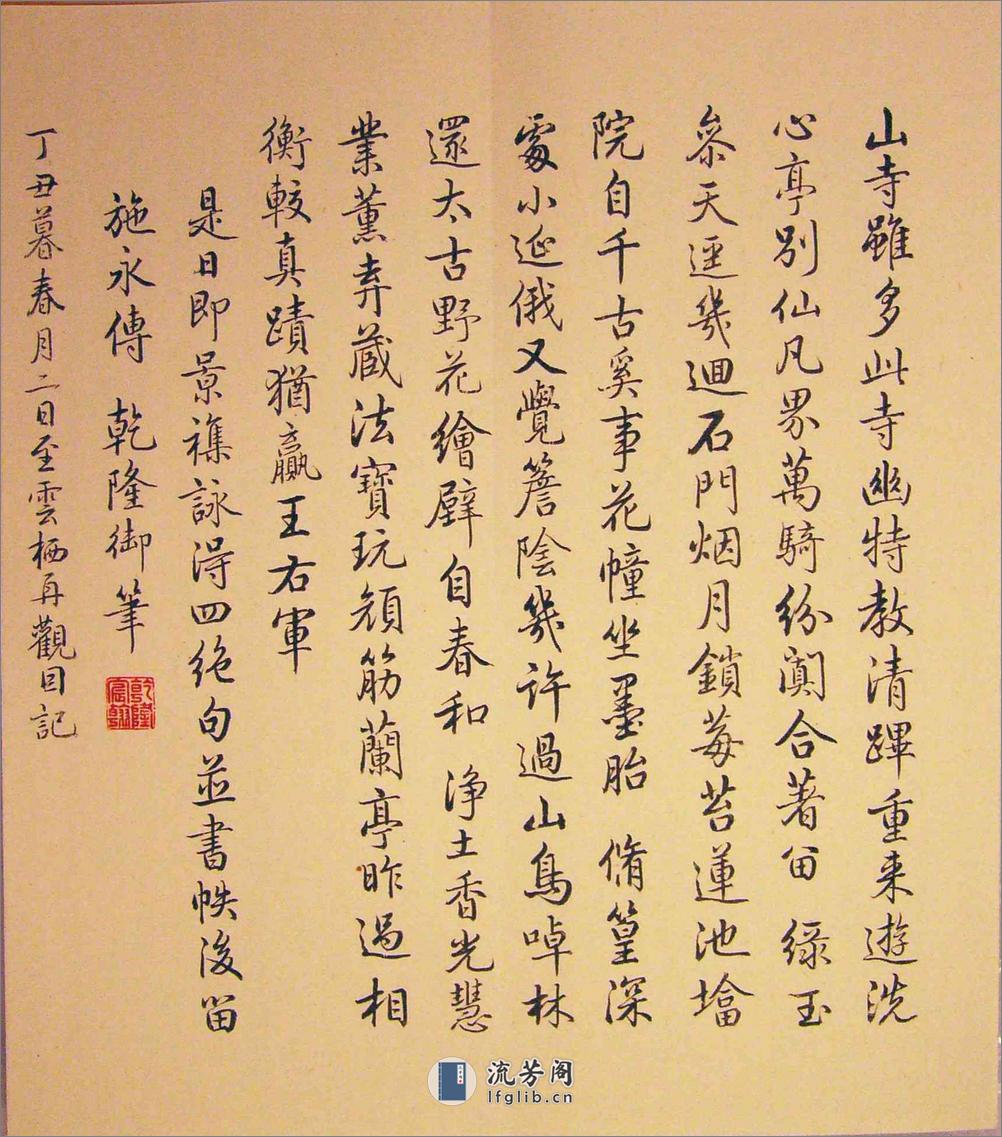 山寺雖多此寺幽特教清蹕重来遊洗
心亭别仙凡界萬騎紛闐合著留 緑玉
叅天逕幾迴石門烟月鎖莓苔蓮池墖
院自千古奚事花幢坐墨胎 脩篁深
處小延俄又覺簷陰幾許過山鳥啅林
還太古野花繪壁自春和 净土香光慧
業薰弆蔵法寶玩顔筋蘭亭昨過相
衡較真蹟猶贏王右軍
是日即景襍詠得四絶句並書帙後留
施永傳 乾隆御筆
乾隆宸翰
丁丑暮春月二日至雲栖再觀因記
流芳阁
lfglib.cn